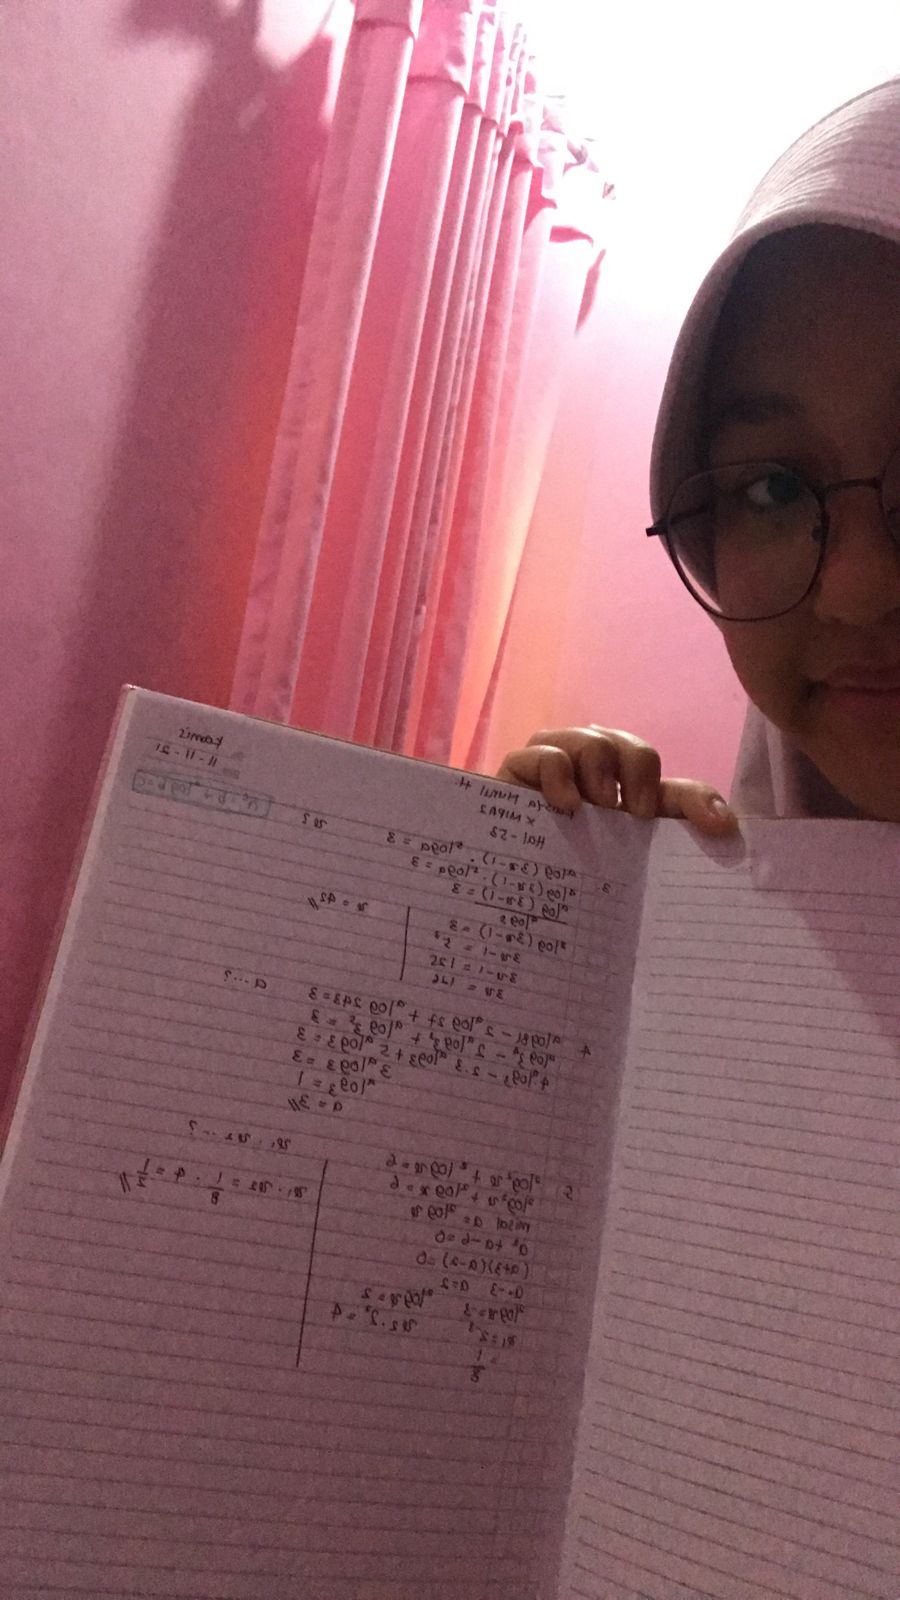 Kamis
11-11-21
X MIPA 2
Hal-53
3 ᵃlog (3x-1) . ⁵log a = 3 x?
ᵃlog (3x-1) . ⁵log a = 3
ᵃlog (3x-1) = 3
⁵log (3x-1) = 3
3x-1 = 5³
3x-1 = 125
3x = 126
x = 42 //
4 ᵃlog 81 - 2 ᵃlog 27 + ᵃlog 243 = 3 a...?
ᵃlog 3⁴ - 2 ᵃlog 3³ + ᵃlog 3⁵ = 3
4 ᵃlog 3 - 2.3 ᵃlog 3 + 5 ᵃlog 3 = 3
3 ᵃlog 3 = 3
ᵃlog 3 = 1
a = 3 //
x₁ . x₂ ...?
5 ²log² x + ²log x = 6
²log² x + ²log x = 6
misal a = ²log x
a² + a - 6 = 0
(a+3)(a-2) = 0
a=-3 a=2
²log x = -3 ²log x = 2
x₁ = 2⁻³ x₂ = 2² = 4
= 1/8
x₁ . x₂ = 1/8 . 4 = 1/2 //